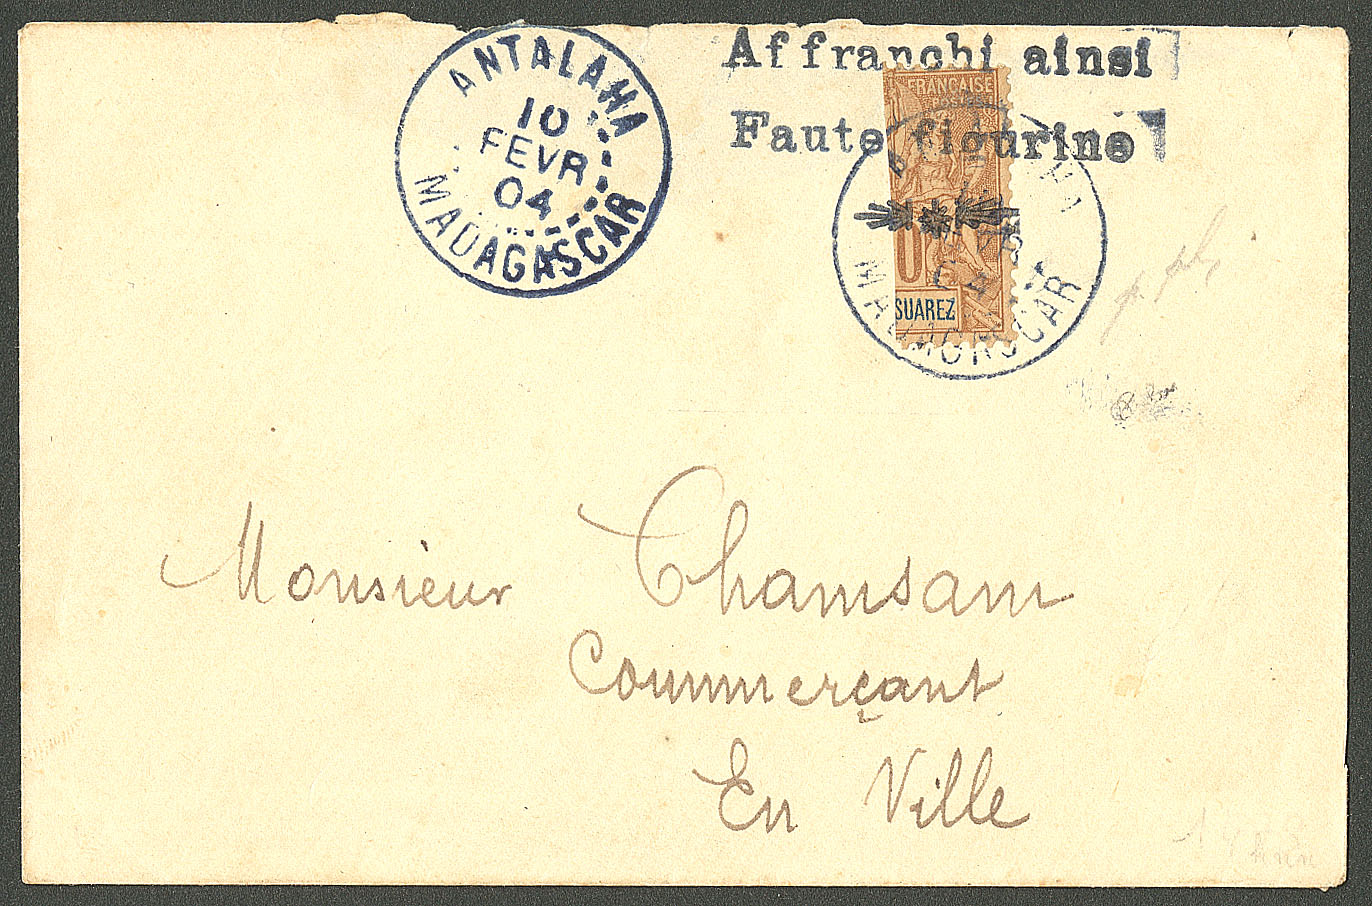 Affranchi ainsi
Faute figurine
ANTALAHA
10
FEVR
04
MADAGASCAR
FRANÇAISE
0
SUAREZ
04
Monsieur Chamsam
Commerçant
En Ville